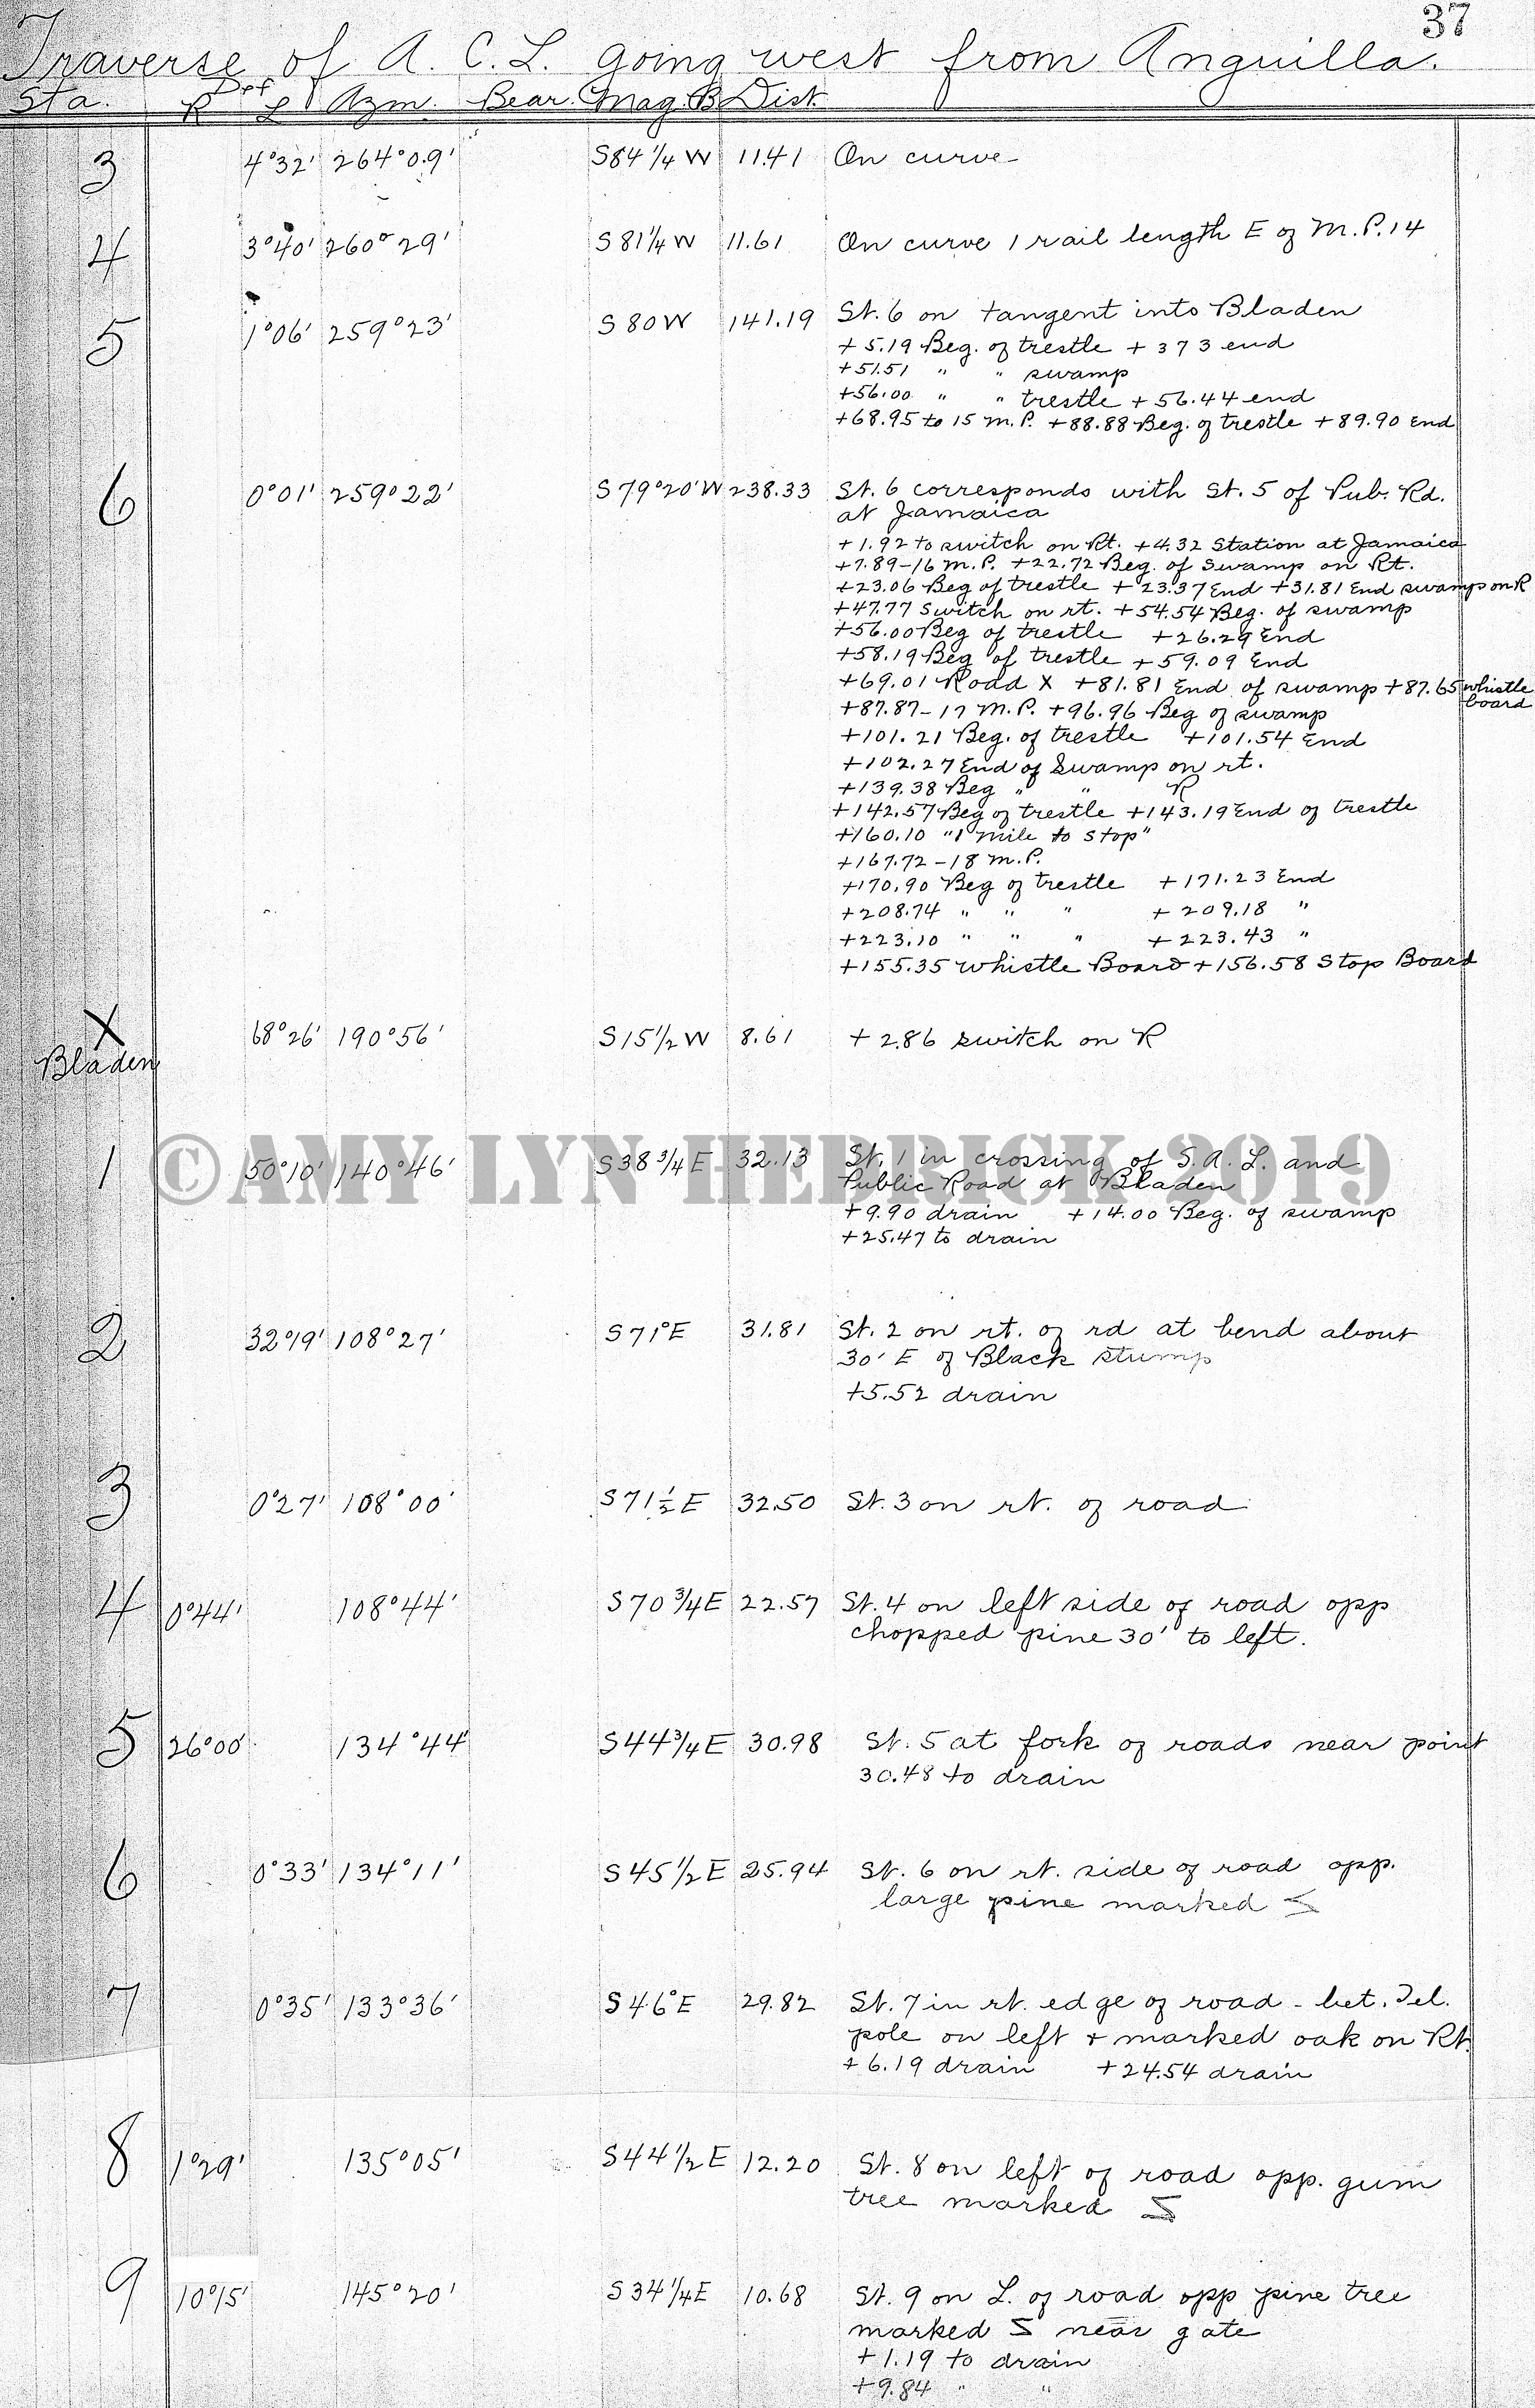 37
Traverse of A. C. L. going west from Anguilla.
Def
Sta. R L Azm. Bear. Mag. B Dist.
3 4°32' 264°09' S84 1/4 W 11.41 On curve
4 3°40' 260°29' S81 1/4 W 11.61 On curve 1 rail length E of M.P. 14
5 1°06' 259°23' S80W 141.19 St. 6 on tangent into Bladen
+5.19 Beg. of trestle +373 end
+51.51 " " swamp
+56.00 " " trestle +56.44 end
+68.95 to 15 M.P. +88.88 Beg. of trestle +89.90 End
6 0°01' 259°22' S79°20'W 238.33 St. 6 corresponds with St. 5 of Pub. Rd.
at Jamaica
+1.92 to switch on Rt. +4.32 Station at Jamaica
+7.89-16 M.P. +22.72 Beg. of Swamp on Rt.
+23.06 Beg of trestle +23.37 End +31.81 End swamp on R
+47.77 Switch on rt. +54.54 Beg. of swamp
+56.00 Beg of trestle +26.29 End
+58.19 Beg of trestle +59.09 End
+69.01 Road X +81.81 End of swamp +87.65 whistle
board
+87.87-17 M.P. +96.96 Beg of swamp
+101.21 Beg. of trestle +101.54 End
+102.27 End of Swamp on rt.
+139.38 Beg " " R
+142.57 Beg of trestle +143.19 End of trestle
+160.10 "1 mile to stop"
+167.72-18 M.P.
+170.90 Beg of trestle +171.23 End
+208.74 " " " +209.18 "
+223.10 " " " +223.43 "
+155.35 Whistle Board +156.58 Stop Board
X 68°26' 190°56' S15 1/2 W 8.61 +2.86 switch on R
Bladen
©AMY LYN HEDRICK 2019
1 50°10' 140°46' S38 3/4 E 32.13 St. 1 in crossing of S. A. L. and
Public Road at Bladen
+9.90 drain +14.00 Beg. of swamp
+25.47 to drain
2 32°19' 108°27' S71°E 31.81 St. 2 on rt. of rd at bend about
30' E of Black stump
+5.52 drain
3 0°27' 108°00' S71 1/2 E 32.50 St. 3 on rt. of road
4 0°44' 108°44' S70 3/4 E 22.57 St. 4 on left side of road opp
chopped pine 30' to left.
5 26°00' 134°44' S44 3/4 E 30.98 St. 5 at fork of roads near point
30.48 to drain
6 0°33' 134°11' S45 1/2 E 25.94 St. 6 on rt. side of road opp.
large pine marked
7 0°35' 133°36' S46°E 29.82 St. 7 in rt. edge of road - bet. Tel.
pole on left + marked oak on Rt.
+6.19 drain +24.54 drain
8 1°29' 135°05' S44 1/2 E 12.20 St. 8 on left of road opp. gum
tree marked
9 10°15' 145°20' S34 1/4 E 10.68 St. 9 on L. of road opp pine tree
marked near gate
+1.19 to drain
+9.84 " "